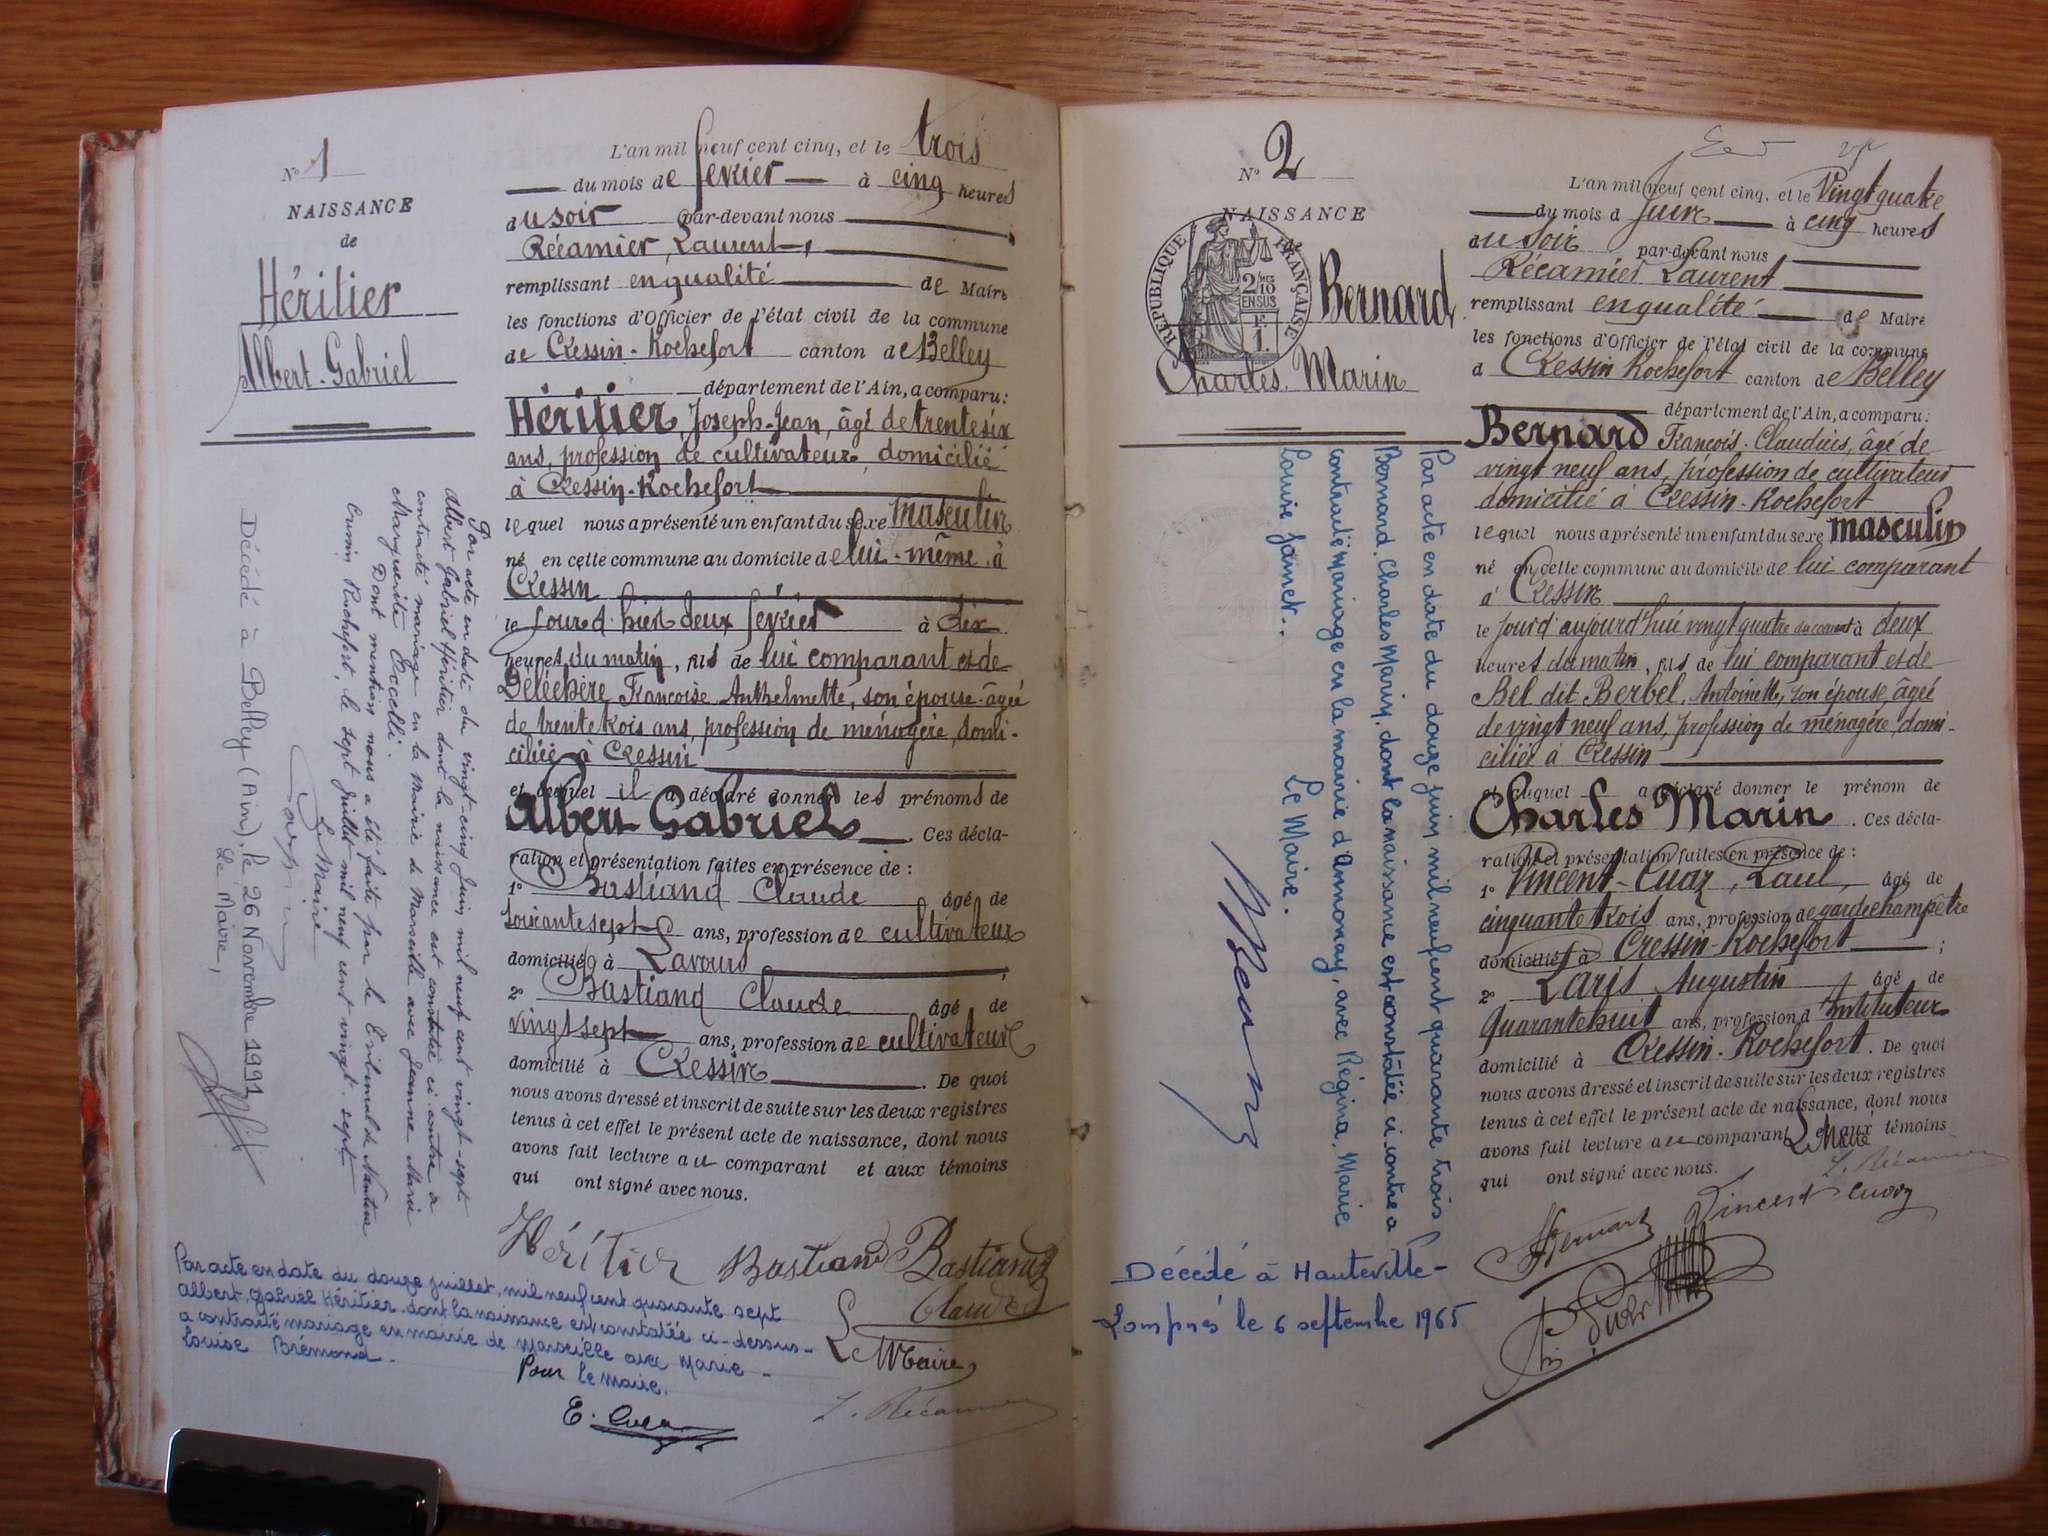 N° 1
NAISSANCE
de
Héritier
Albert-Gabriel
L'an mil neuf cent cinq, et le trois
du mois de fevrier à cinq heures
du soir par-devant nous
Récamier, Laurent,
remplissant en qualité de Maire
les fonctions d'Officier de l'état civil de la commune
de Cressin-Rochefort canton de Belley
département de l'Ain, a comparu:
Héritier, Joseph-Jean, âgé de trente six
ans, profession de cultivateur, domicilié
à Cressin-Rochefort
lequel nous a présenté un enfant du sexe masculin
né en cette commune au domicile de lui-même à
Cressin
le jour d'hier deux février à dix
heures du matin, fils de lui comparant et de
Deléchère Françoise Anthelmette, son épouse âgée
de trente trois ans, profession de ménagère, domi-
ciliée à Cressin
et auquel il a déclaré donner les prénoms de
Albert Gabriel. Ces décla-
ration et présentation faites en présence de :
1° Bastiand Claude âgé de
soixante sept ans, profession de cultivateur
domicilié à Lavours
2° Bastiand Claude âgé de
vingt sept ans, profession de cultivateur
domicilié à Cressin. De quoi
nous avons dressé et inscrit de suite sur les deux registres
tenus à cet effet le présent acte de naissance, dont nous
avons fait lecture au comparant et aux témoins
qui ont signé avec nous.
Héritier Bastiand Bastiand
Claude
Le Maire,
L. Récamier
Par acte en date du vingt-cinq Juin mil neuf cent vingt-sept
Albert Gabriel Héritier dont la naissance est constatée ci-contre a
contracté mariage en la Mairie de Marseille avec Jeanne Marie
Marguerite Bocelli.
Dont mention nous a été faite par le Tribunal de Nantua
Cressin Rochefort, le sept Juillet mil neuf cent vingt-sept
Le Maire
Décédé à Belley (Ain), le 26 Novembre 1991
Le Maire,
Par acte en date du douze juillet, mil neuf cent quarante sept
Albert, Gabriel Héritier dont la naissance est constatée ci-dessus-
a contracté mariage en mairie de Marseille avec Marie-
Louise Brémond.
Pour le maire.
N° 2
NAISSANCE
RÉPUBLIQUE FRANÇAISE
2/10
EN SUS
1.
Bernard
Charles. Marin
L'an mil neuf cent cinq, et le Vingt quatre
du mois d Juin à cinq heures
du soir par-devant nous
Récamier Laurent
remplissant en qualité de Maire
les fonctions d'Officier de l'état civil de la commune
d Cressin Rochefort canton de Belley
département de l'Ain, a comparu:
Bernard François-Claudius, âgé de
vingt neuf ans, profession de cultivateur
domicilié à Cressin-Rochefort
lequel nous a présenté un enfant du sexe masculin
né en cette commune au domicile de lui comparant
à Cressin
le jour d'aujourd'hui vingt quatre du courant à deux
heures du matin, fils de lui comparant et de
Bel dit Berbel, Antoinette, son épouse âgée
de vingt neuf ans, profession de ménagère, domi-
ciliée à Cressin
et auquel a déclaré donner le prénom de
Charles Marin. Ces décla-
ration et présentation faites en présence de :
1° Vincent-Cuaz, Paul, âgé de
cinquante trois ans, profession de garde champêtre
domicilié à Cressin-Rochefort ;
2° Paris Augustin âgé de
quarante huit ans, profession d'Instituteur
domicilié à Cressin-Rochefort. De quoi
nous avons dressé et inscrit de suite sur les deux registres
tenus à cet effet le présent acte de naissance, dont nous
avons fait lecture au comparant et aux témoins
qui ont signé avec nous.
Le Maire
L. Récamier
Bernard Vincent Cuaz
Par acte en date du douze juin mil neuf cent quarante trois
Bernard. Charles Marin, dont la naissance est constatée ci-contre a
contracté mariage en la mairie d'Annonay, avec Régina, Marie
Louise Jainet..
Le Maire.
Décédé à Hauteville-
Lompnès le 6 septembre 1965